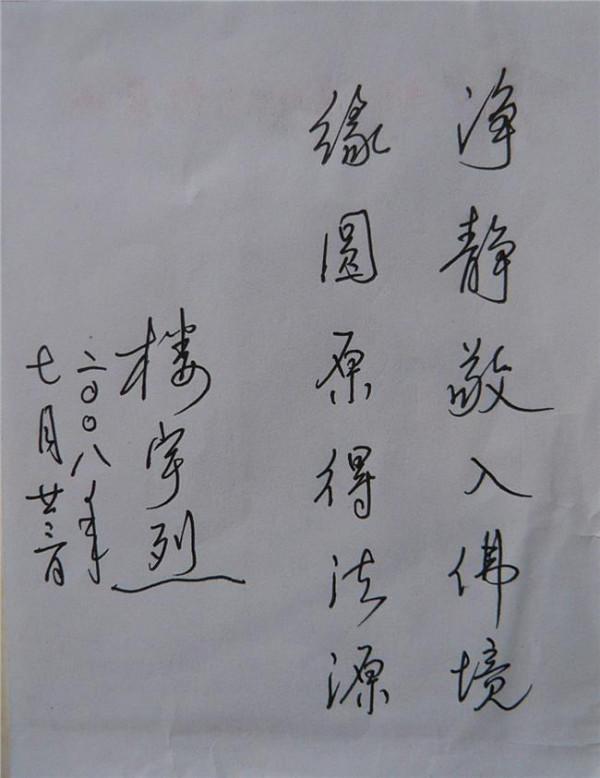 净静敬入佛境
缘圆原得法源
楼宇烈
二〇〇八年
七月廿三日